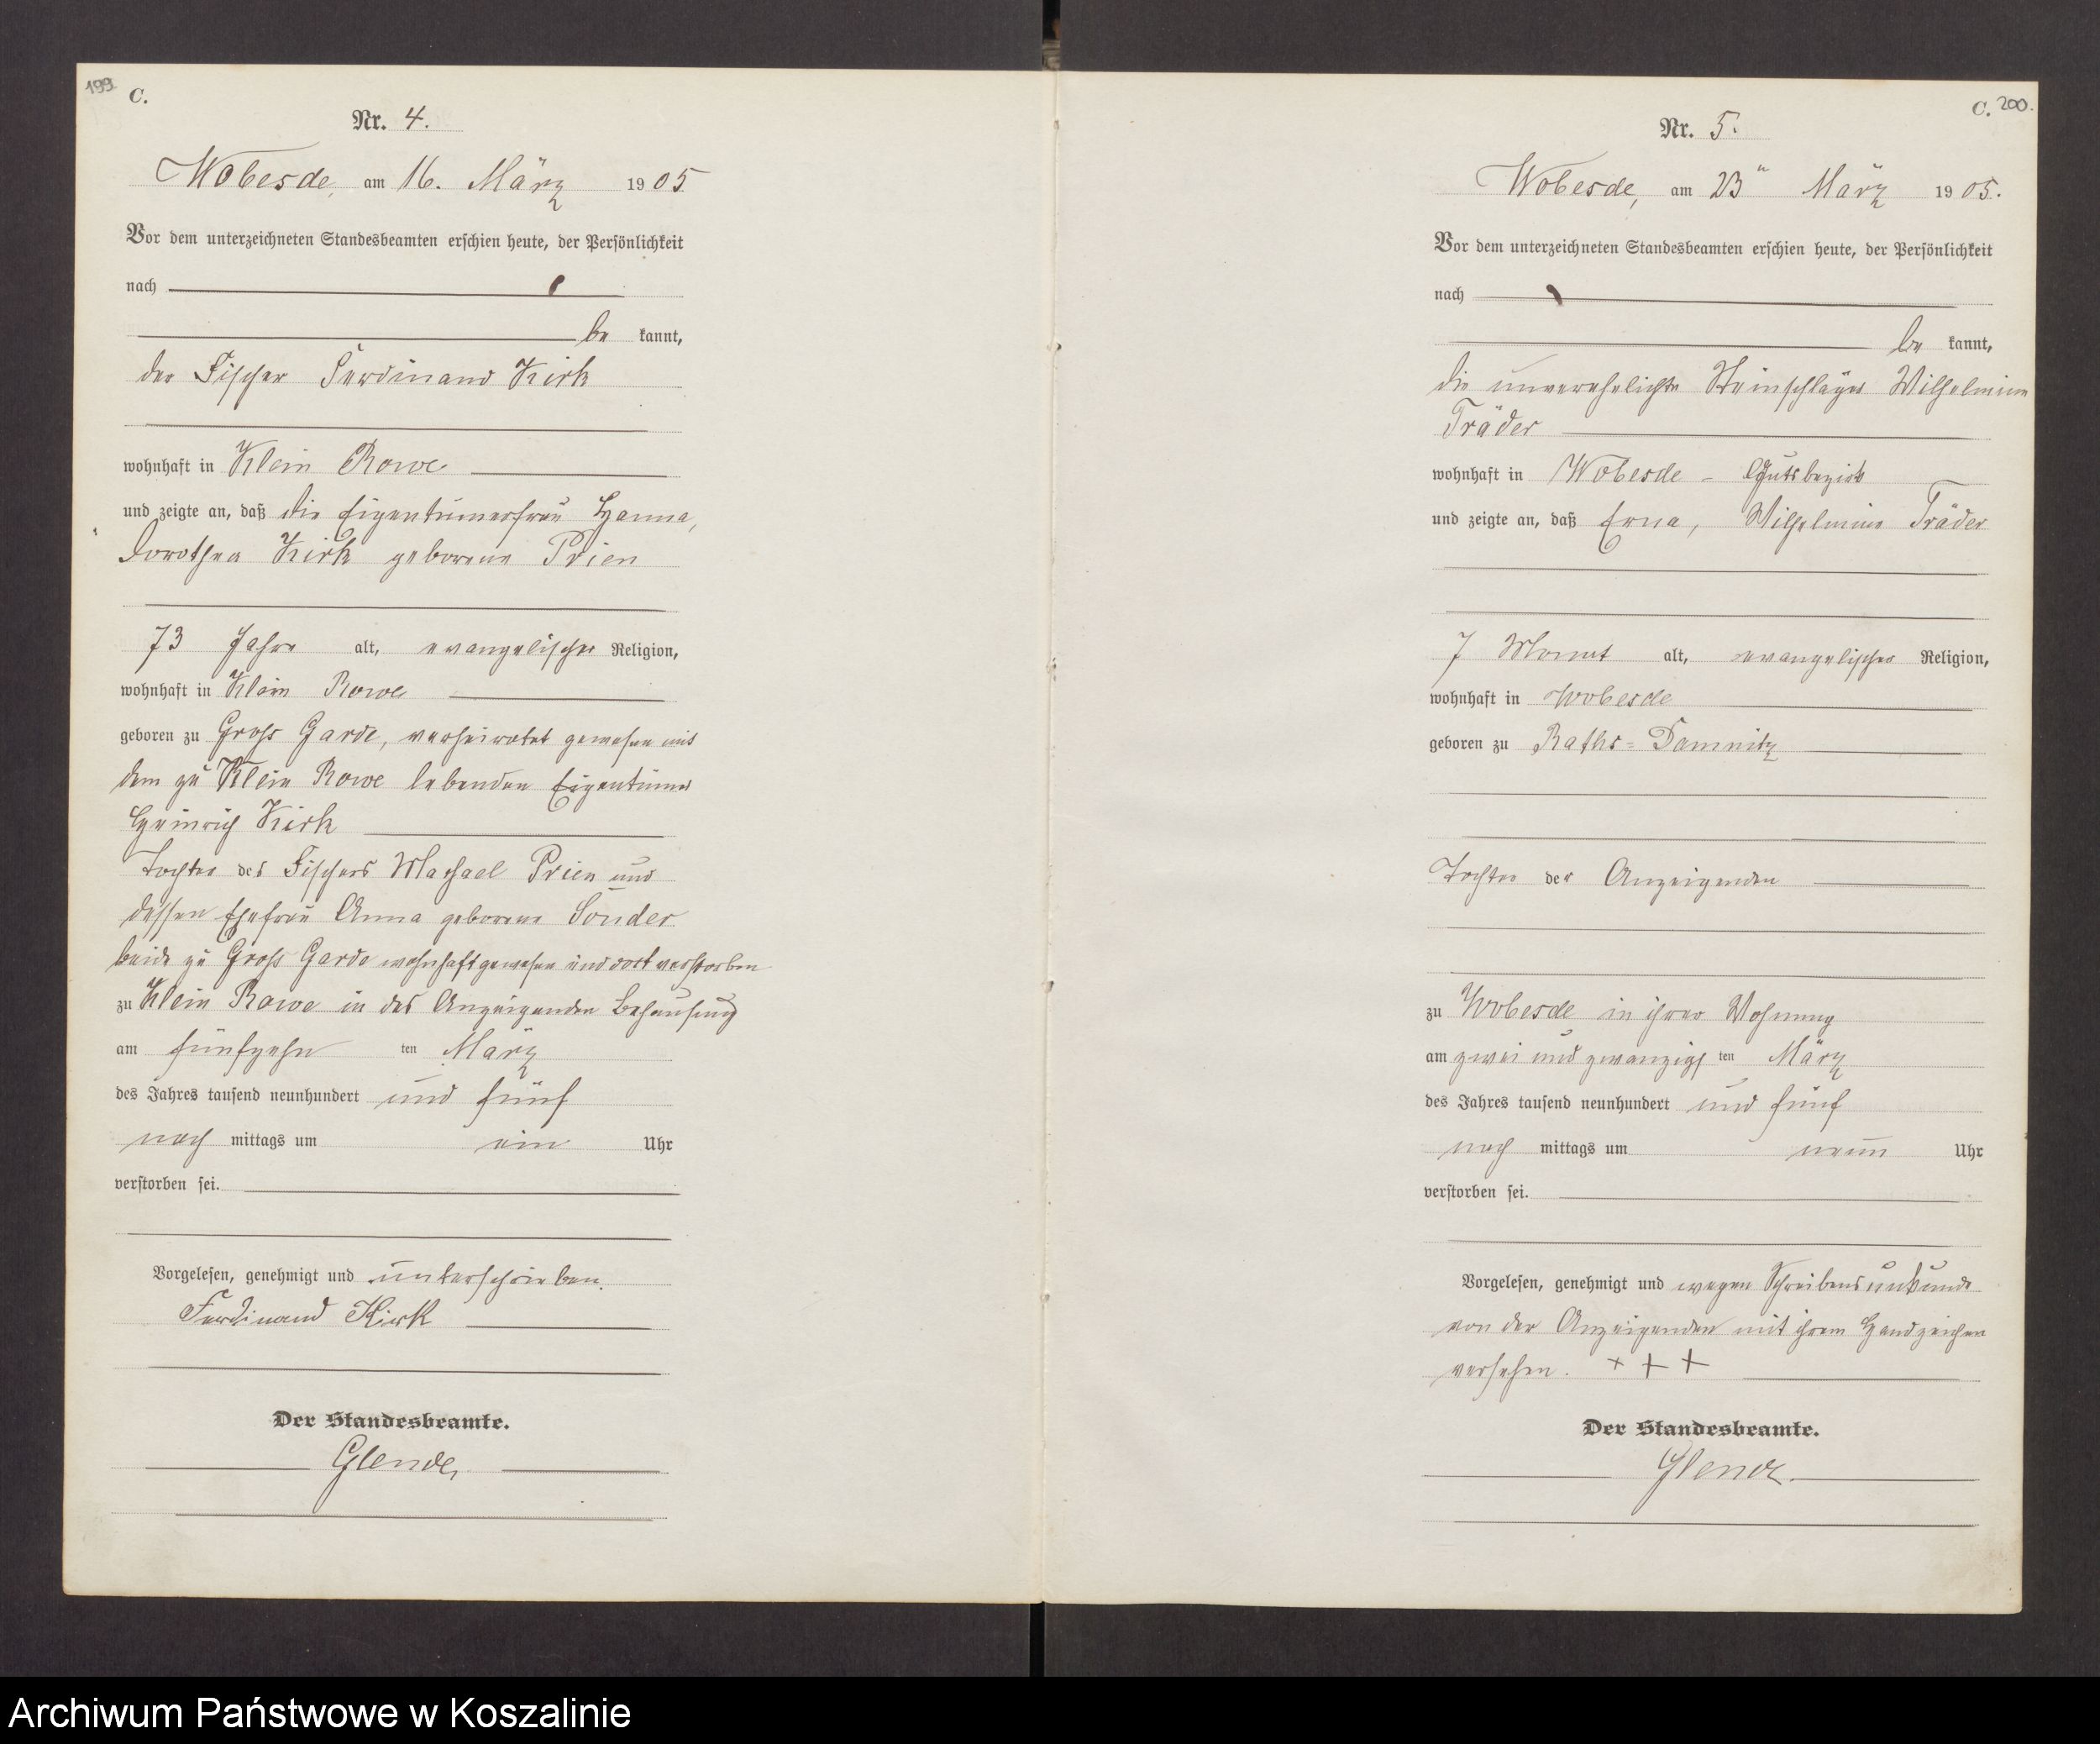 199
C.
Nr. 4.
Wobesde, am 16. März 1905
Vor dem unterzeichneten Standesbeamten erschien heute, der Persönlichkeit
nach
be kannt,
der Fischer Ferdinand Kirk
wohnhaft in Klein Rowe
und zeigte an, daß die Eigentümerfrau Hanna,
Dorothea Kirk geborene Prien
73 Jahre alt, evangelischer Religion,
wohnhaft in Klein Rowe
geboren zu Groß Garde, verheiratet gewesen mit
dem zu Klein Rowe lebenden Eigentümer
Heinrich Kirk
Tochter des Fischers Prien und
dessen Ehefrau Anna geborene Sonder
beide zu Groß Garde wohnhaft gewesen und dort verstorben
zu Klein Rowe in des Anzeigenden Behausung
am fünfzehn ten März
des Jahres tausend neunhundert und fünf
nach mittags um ein Uhr
verstorben sei.
Vorgelesen, genehmigt und unterschrieben.
Ferdinand Kirk
Der Standesbeamte.
Glende,
C. 200.
Nr. 5.
Wobesde, am 23ten März 1905.
Vor dem unterzeichneten Standesbeamten erschien heute, der Persönlichkeit
nach
be kannt,
die unverehelichte Steinschläger Wilhelmine
Träder
wohnhaft in Wobesde - Gutsbezirk
und zeigte an, daß Erna, Wilhelmine Träder
7 Monat alt, evangelischer Religion,
wohnhaft in Wobesde
geboren zu Raths-Damnitz
Tochter der Anzeigenden
zu Wobesde in ihrer Wohnung
am zwei und zwanzigs ten März
des Jahres tausend neunhundert und fünf
nach mittags um neun Uhr
verstorben sei.
Vorgelesen, genehmigt und wegen Schreibensunkunde
von der Anzeigenden mit ihrem Handzeichen
versehen. + + +
Der Standesbeamte.
Glende.
Archiwum Państwowe w Koszalinie